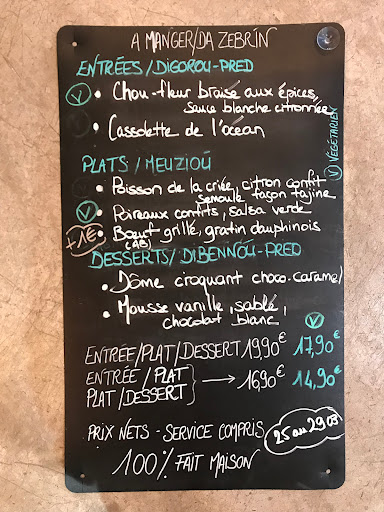 A MANGER/DA ZEBRIÑ
ENTRÉES/DIGOROU-PRED
Ⓥ • Chou-fleur braisé aux épices,
sauce blanche citronnée
• Cassolette de l'océan
Ⓥ VÉGÉTARIEN
PLATS / MEUZIOÙ
• Poisson de la criée, citron confit
semoule façon tajine
Ⓥ • Poireaux confits, salsa verde
+1€ • Bœuf grillé, gratin dauphinois
(AB)
DESSERTS/DIBENNOÙ-PRED
• Dôme croquant choco-caramel
• Mousse vanille, sablé,
chocolat blanc
Ⓥ
ENTRÉE/PLAT/DESSERT 19,90€ 17,90€
ENTRÉE / PLAT
PLAT/DESSERT } → 16,90€ 14,90€
PRIX NETS - SERVICE COMPRIS
25 au 29 03
100% FAIT MAISON